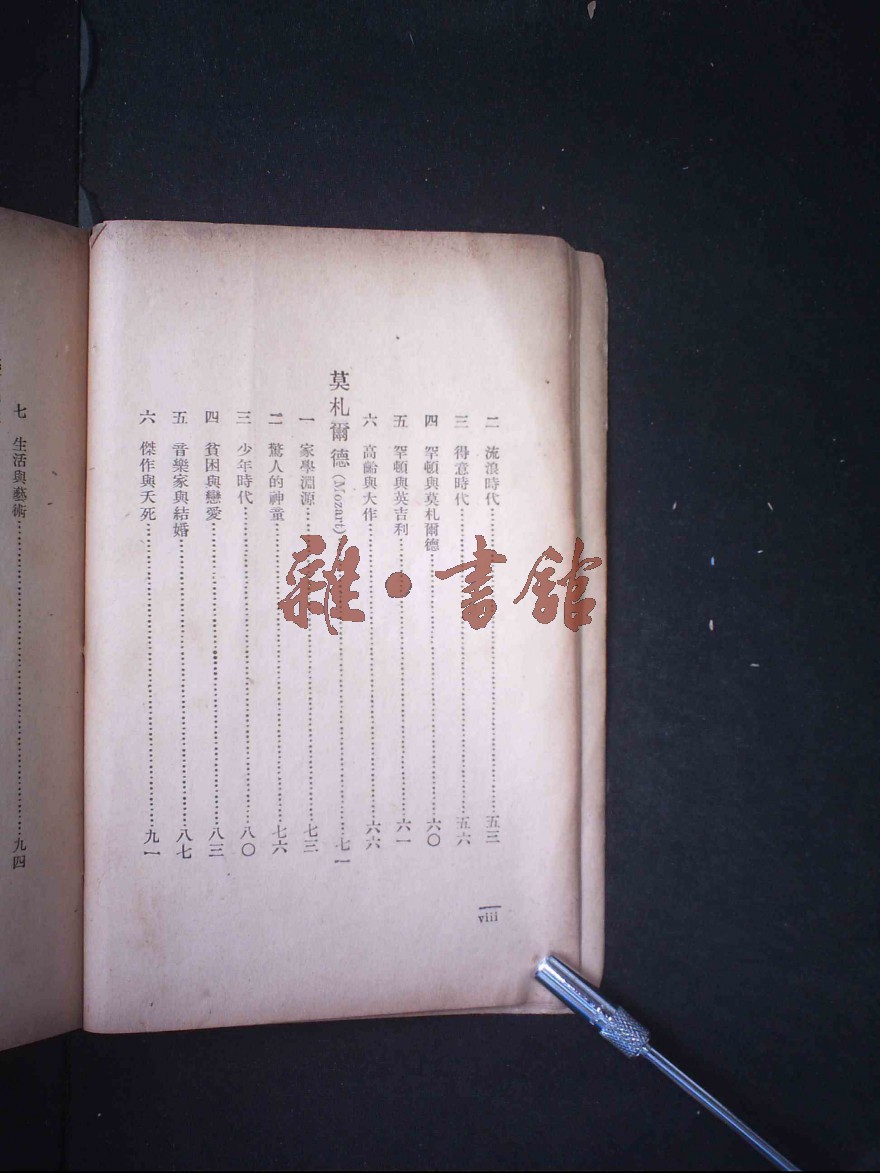 二 流浪時代 五三
三 得意時代 五六
四 罕頓與莫札爾德 六〇
五 罕頓與英吉利 六一
六 高齡與大作 六六
莫札爾德 (Mozart) 七一
一 家學淵源 七三
二 驚人的神童 七六
三 少年時代 八〇
四 貧困與戀愛 八三
五 音樂家與結婚 八七
六 傑作與夭死 九一
viii
七 生活與藝術 九四
雜·書館